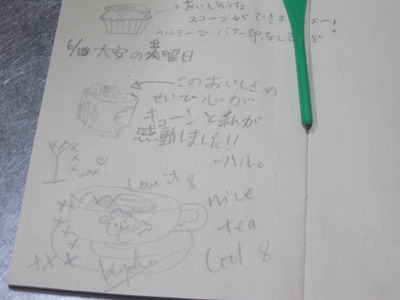 おいしそうな
スコーンができま
ヘルシーで、バター
6/10 大安の火曜日
金
このおいしさの
せいで心が
キューンと私が
感動しました!!
-ハル。
Love it 8
nice
tea
Cool 8